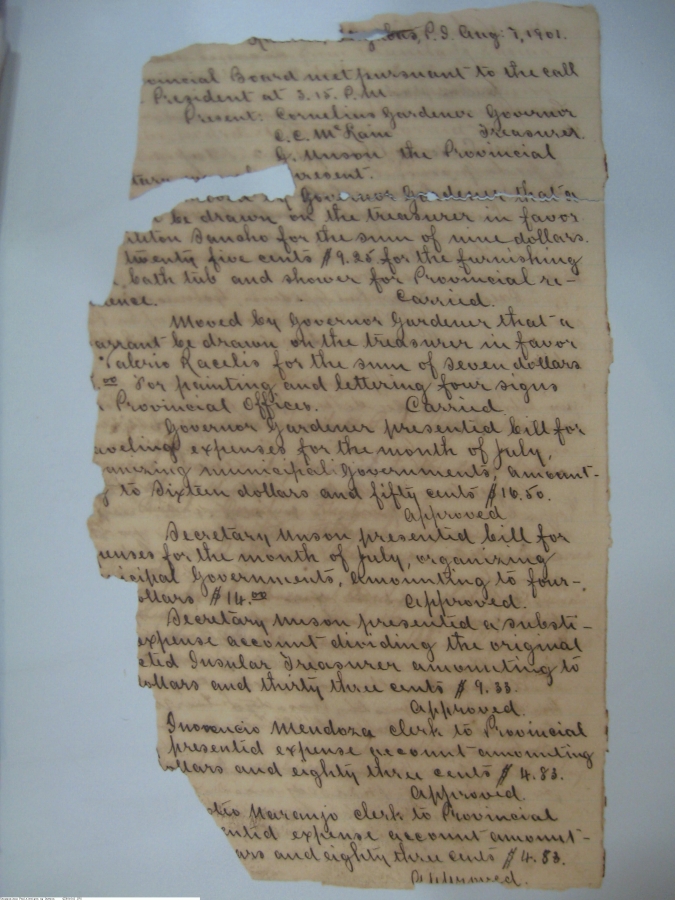 P.I. Aug. 7, 1901.
ovincial Board met pursuant to the call
President at 3.15. P.M.
Present: Cornelius Gardener Governor
C. C. McKain Treasurer
G. Unson the Provincial
present.
moved by Governor Gardener that a
be drawn on the treasurer in favor
Sancho for the sum of nine dollars
twenty five cents $9.25 for the furnishing
bath tub and shower for Provincial re-
ence. Carried.
Moved by Governor Gardener that a
arrant be drawn on the treasurer in favor
Valerio Racelis for the sum of seven dollars
.00 For painting and lettering four signs
Provincial Offices. Carried
Governor Gardener presented bill for
aveling expenses for the month of July,
nizing municipal Governments, amount-
g to Sixteen dollars and fifty cents $16.50.
Approved
Secretary Unson presented bill for
penses for the month of July, organizing
icipal Governments, amounting to four-
ollars $14.00 Approved.
Secretary Unson presented a substi-
expense account dividing the original
cted Insular Treasurer amounting to
dollars and thirty three cents $9.33.
Approved.
Inocencio Mendoza clerk to Provincial
presented expense account amounting
ollars and eighty three cents $4.83.
Approved.
Naranjo clerk to Provincial
ented expense account amount-
ars and eighty three cents $4.83.
Approved.